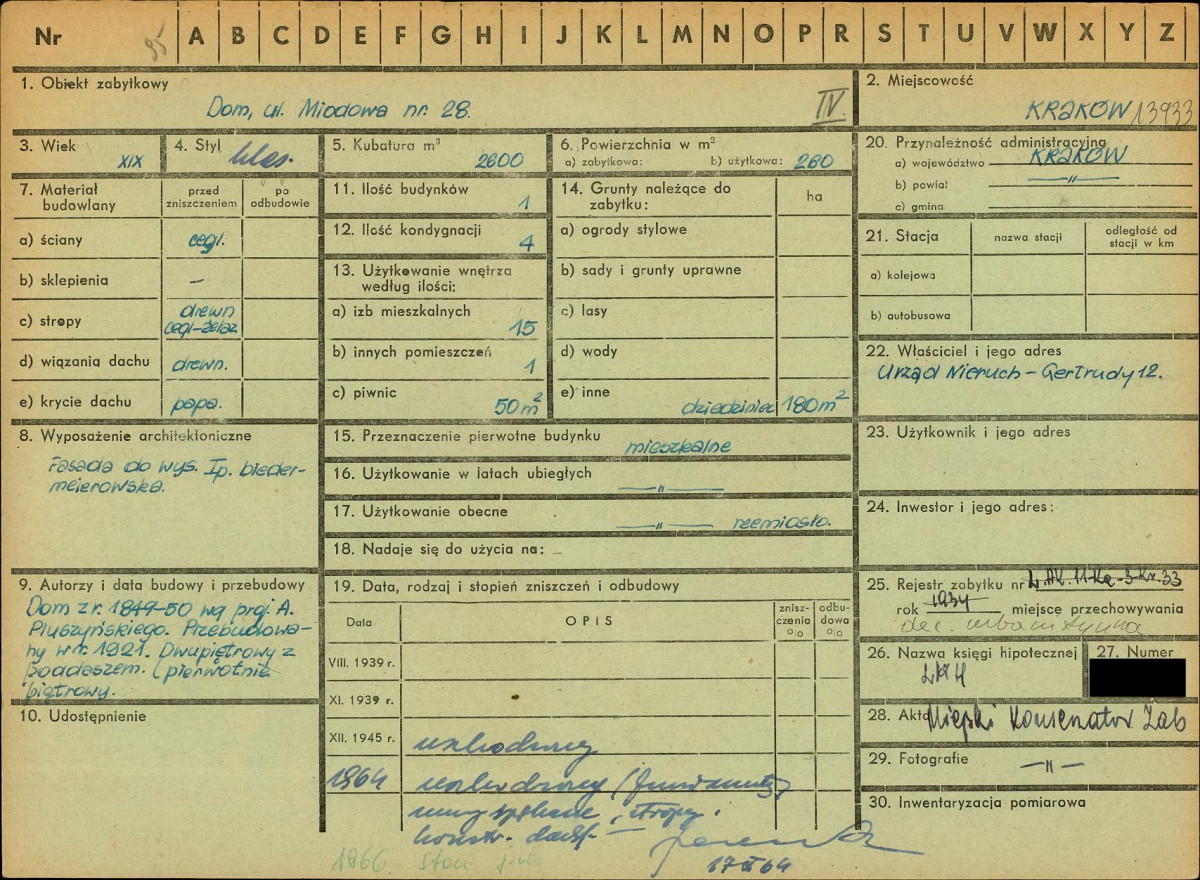 Nr 95 A B C D E F G H I J K L M N O P R S T U V W X Y Z
1. Obiekt zabytkowy
Dom, ul. Miodowa nr. 28.
IV.
2. Miejscowość
KRAKÓW 13933
3. Wiek
XIX
4. Styl
klas.
5. Kubatura m³
2600
6. Powierzchnia w m²
a) zabytkowa: b) użytkowa: 260
20. Przynależność administracyjna
a) województwo KRAKÓW
b) powiat —〃—
c) gmina
7. Materiał budowlany
przed zniszczeniem
po odbudowie
a) ściany cegl.
b) sklepienia —
c) stropy drewn
cegl-żelaz
d) wiązania dachu drewn.
e) krycie dachu papa.
11. Ilość budynków 1
12. Ilość kondygnacji 4
13. Użytkowanie wnętrza
według ilości:
a) izb mieszkalnych 15
b) innych pomieszczeń 1
c) piwnic 50 m²
14. Grunty należące do
zabytku:
ha
a) ogrody stylowe
b) sady i grunty uprawne
c) lasy
d) wody
e) inne dziedziniec 180 m²
21. Stacja
nazwa stacji
odległość od
stacji w km
a) kolejowa
b) autobusowa
22. Właściciel i jego adres
Urząd Nieruch - Gertrudy 12.
8. Wyposażenie architektoniczne
Fasada do wys. I p. bieder-
meierowska.
15. Przeznaczenie pierwotne budynku mieszkalne
16. Użytkowanie w latach ubiegłych —〃—
17. Użytkowanie obecne —〃— rzemiosło.
18. Nadaje się do użycia na: —
23. Użytkownik i jego adres
24. Inwestor i jego adres:
9. Autorzy i data budowy i przebudowy
Dom z r. 1849-50 wg proj. A.
Pluszyńskiego. Przebudowa-
ny w r. 1921. Dwupiętrowy z
poddaszem. (pierwotnie
piętrowy.
10. Udostępnienie
19. Data, rodzaj i stopień zniszczeń i odbudowy
Data
OPIS
znisz-
czenia
%
odbu-
dowa
%
VIII. 1939 r.
XI. 1939 r.
XII. 1945 r.
1964
konstr. dach
17 64
1966 stan j.w
25. Rejestr zabytku nr
rok 1934, miejsce przechowywania
dec. urbanistyczna
26. Nazwa księgi hipotecznej
27. Numer
28. Akta Miejski Konserwator Zab
29. Fotografie —〃—
30. Inwentaryzacja pomiarowa